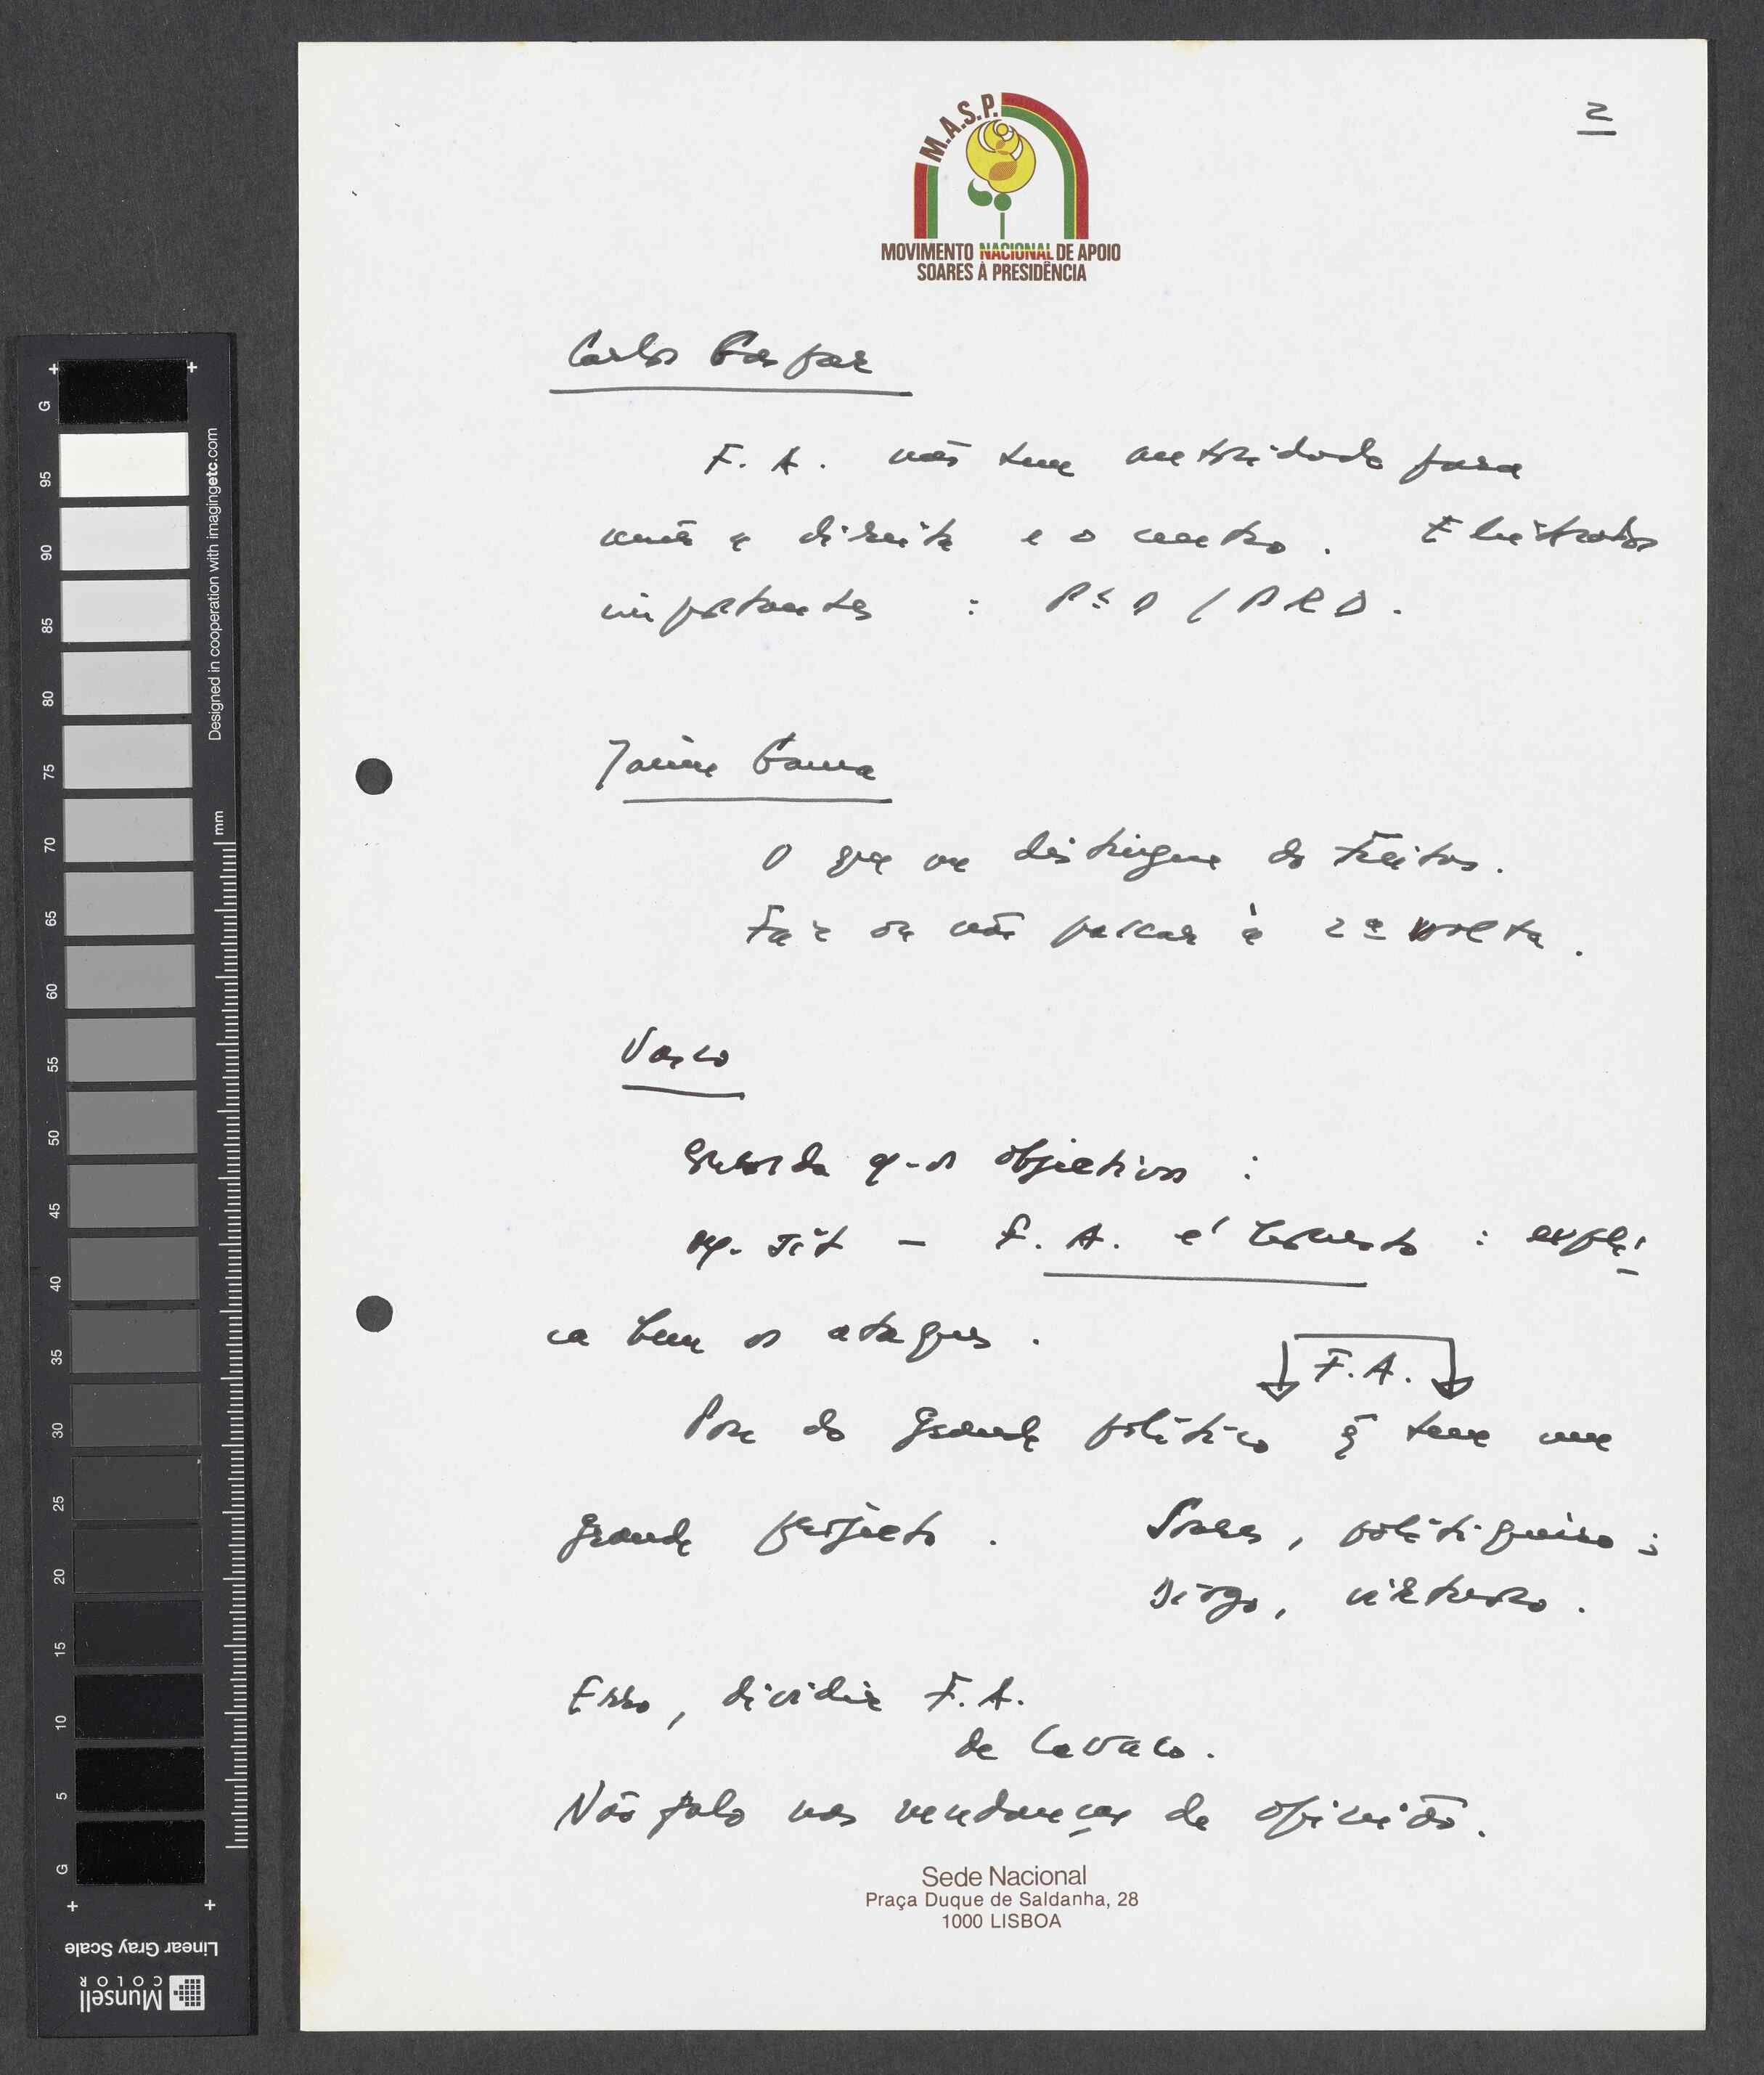 2
M.A.S.P.
MOVIMENTO NACIONAL DE APOIO
SOARES À PRESIDÊNCIA
Carlos Gaspar
F. A. não tem autoridade para
unir a direita e o centro. Eleitorados
importantes : PSD / PRD.
Jaime Gama
O que me distingue do Freitas.
Faz ou não passar à 2ª volta.
Vasco
os objectivos :
F. A. é : expli
ca bem os ataques.
F.A.
Pose de grande político q̃ tem um
grande projecto. Soares, politiqueiro ;
Diogo, virtuoso.
Erro, dividir F. A.
de Cavaco.
Não falo nas mudanças de opinião.
Sede Nacional
Praça Duque de Saldanha, 28
1000 LISBOA
G
95
90
85
80
75
70
65
60
55
50
45
40
35
30
25
20
15
10
5
G
mm
Designed in cooperation with imagingetc.com
Linear Gray Scale
Munsell
COLOR